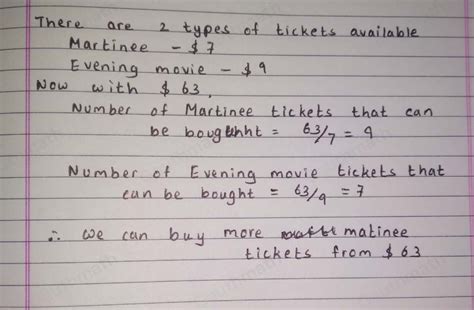 There are 2 types of tickets available
Martinee - $7
Evening movie - $9
Now with $63,
Number of Martinee tickets that can
be boughht = 63/7 = 9
Number of Evening movie tickets that
can be bought = 63/9 = 7
∴ we can buy more matinee
tickets from $63